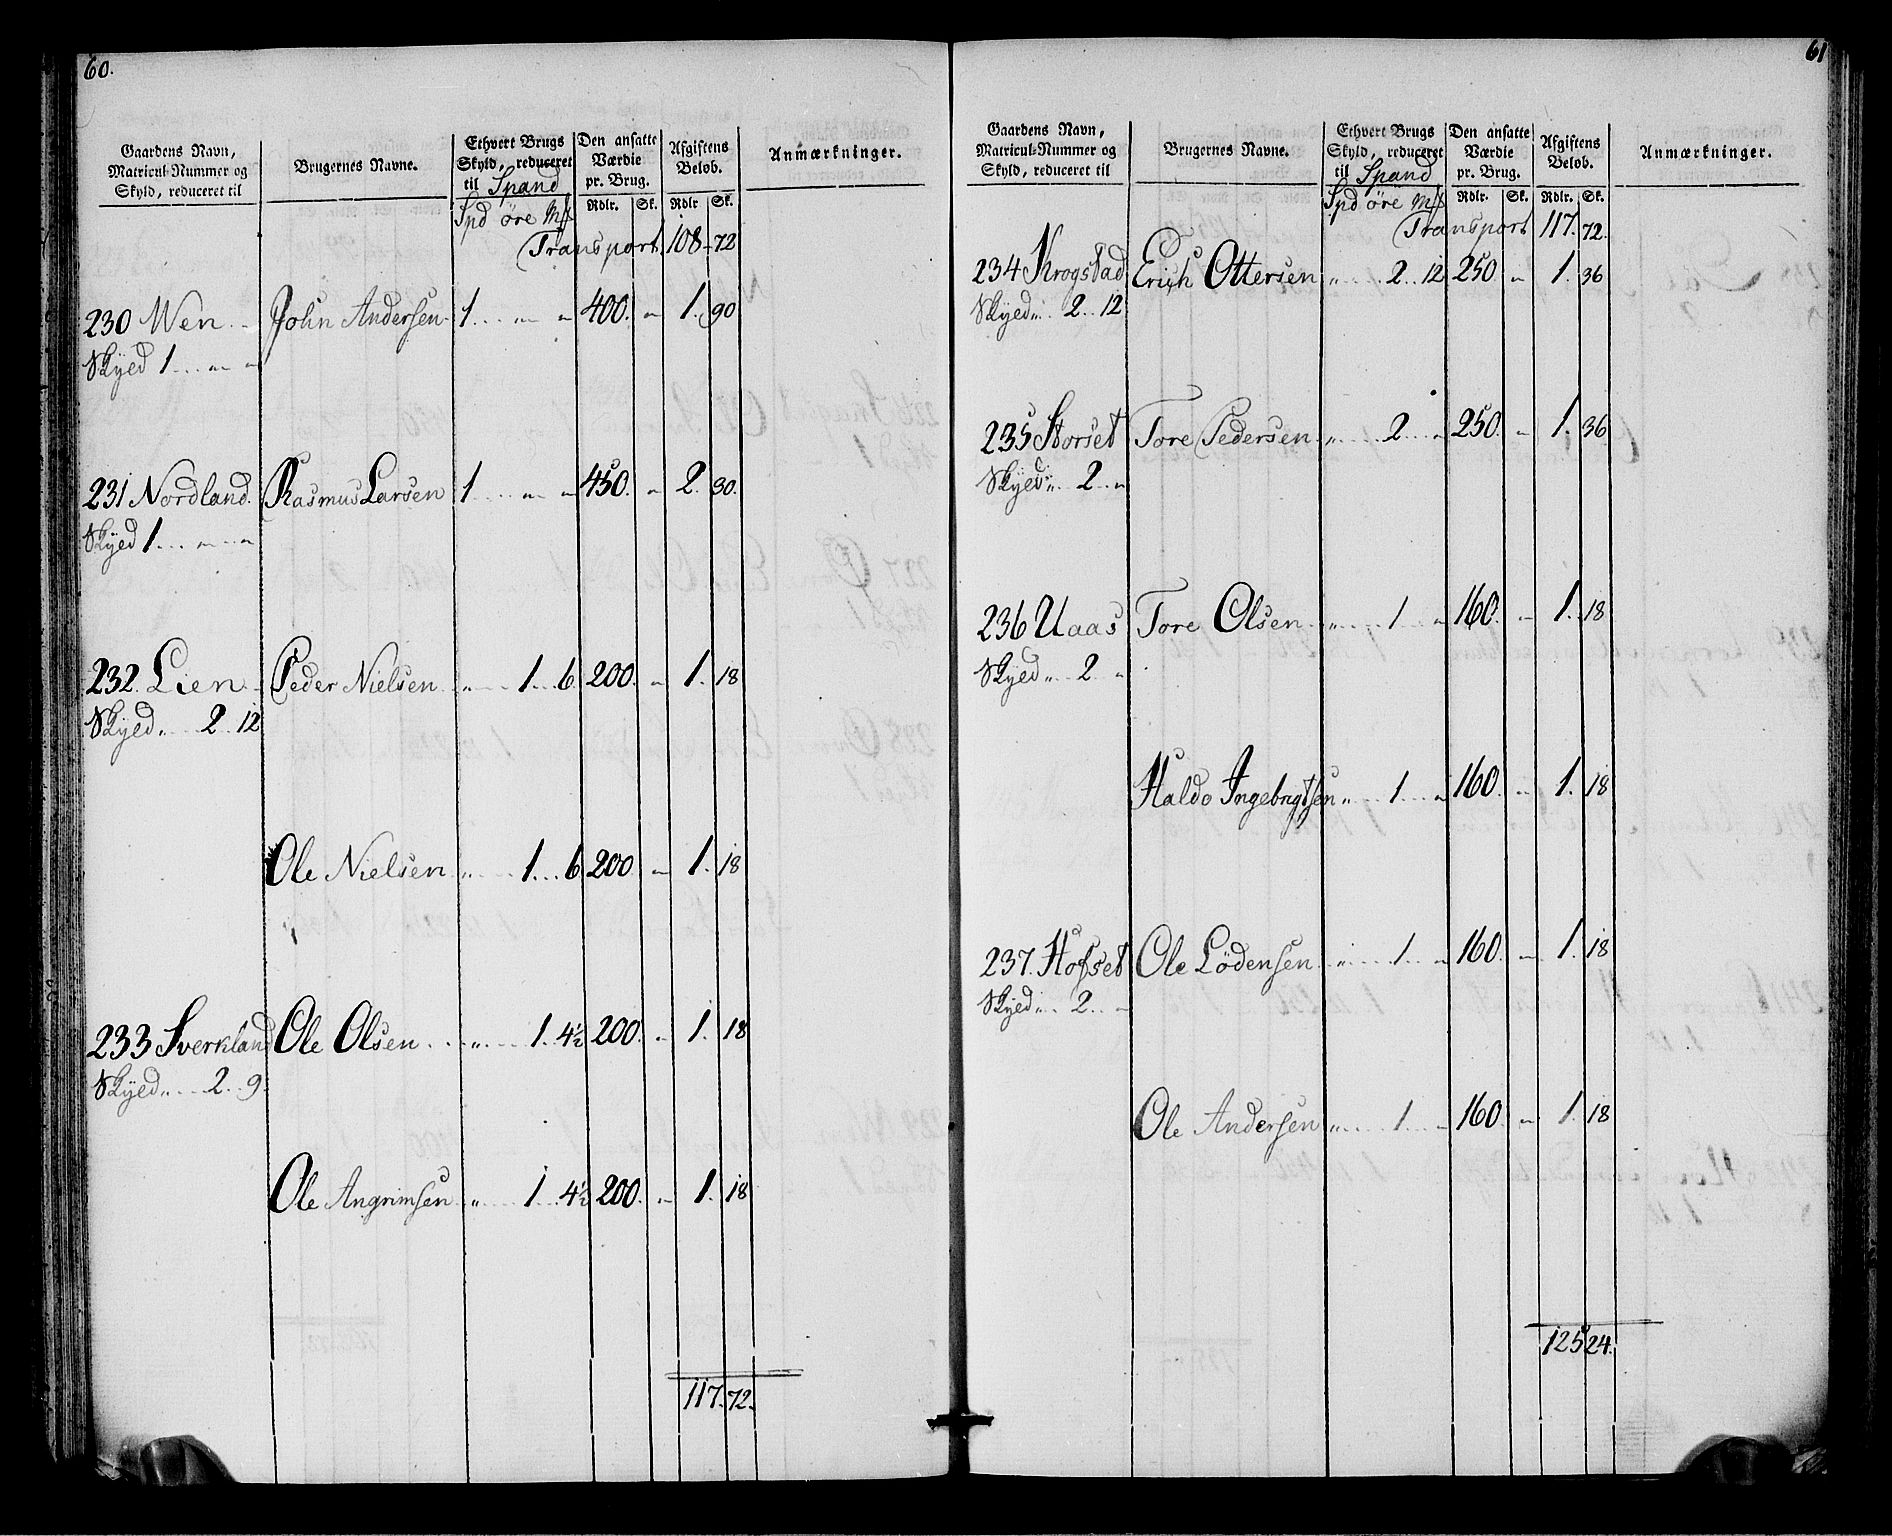 60.
Gaardens Navn, Matricul-Nummer og Skyld, reduceret til | Brugernes Navne. | Ethvert Brugs Skyld, reduceret til Spand | Den ansatte Værdie pr. Brug. | Afgiftens Beløb. | Anmærkninger.
Spd øre Mk | Rdlr. Sk. | Rdlr Sk.
Transport 108 - 72
230 Wen John Andersen 1 . . . „ „ 400. „ 1. 90
Skyed 1 . . . „ „
231 Nordland Rasmus Larsen 1 . . . „ „ 450. „ 2. 30.
Skyed 1 . . . „ „
232. Lien Peder Nielsen „ . . . 1 . . . 6 200. „ 1. 18
Skyed „ . . . 2 . . 12
Ole Nielsen „ . . . 1 . . . 6 200 „ 1. 18
233 Sverkland Ole Olsen . . . „ . . . 1 . . 4½ 200. „ 1. 18
Skyed „ . . . 2 . . 9.
Ole Angrimsen „ . . . 1 . . 4½ 200. „ 1. 18
117. 72.
61
Gaardens Navn, Matricul-Nummer og Skyld, reduceret til | Brugernes Navne. | Ethvert Brugs Skyld, reduceret til Spand | Den ansatte Værdie pr. Brug. | Afgiftens Beløb. | Anmærkninger.
Spd øre Mk | Rdlr. Sk. | Rdlr. Sk.
Transport 117. 72.
234 Krogstad Erich Ottersen „ . . . 2 . . 12 250 „ 1. 36
Skyed „ . 2 . . 12
235 Storset Tore Pedersen „ . . . 2 . . . „ 250. „ 1. 36
Skyed „ . . 2 . . „
236 Uaas Tore Olsen „ . . . 1 . . . „ 160. „ 1. 18
Skyed „ . . 2 . . „
Haldo Ingebrigtsen „ . . . 1 . . . „ 160. „ 1. 18
237. Hofset Ole Lödensen „ . . . 1 . . . „ 160. „ 1. 18
Skyed „ . . 2 . . „
Ole Andersen „ . . . 1 . . . „ 160. „ 1. 18
125 24.